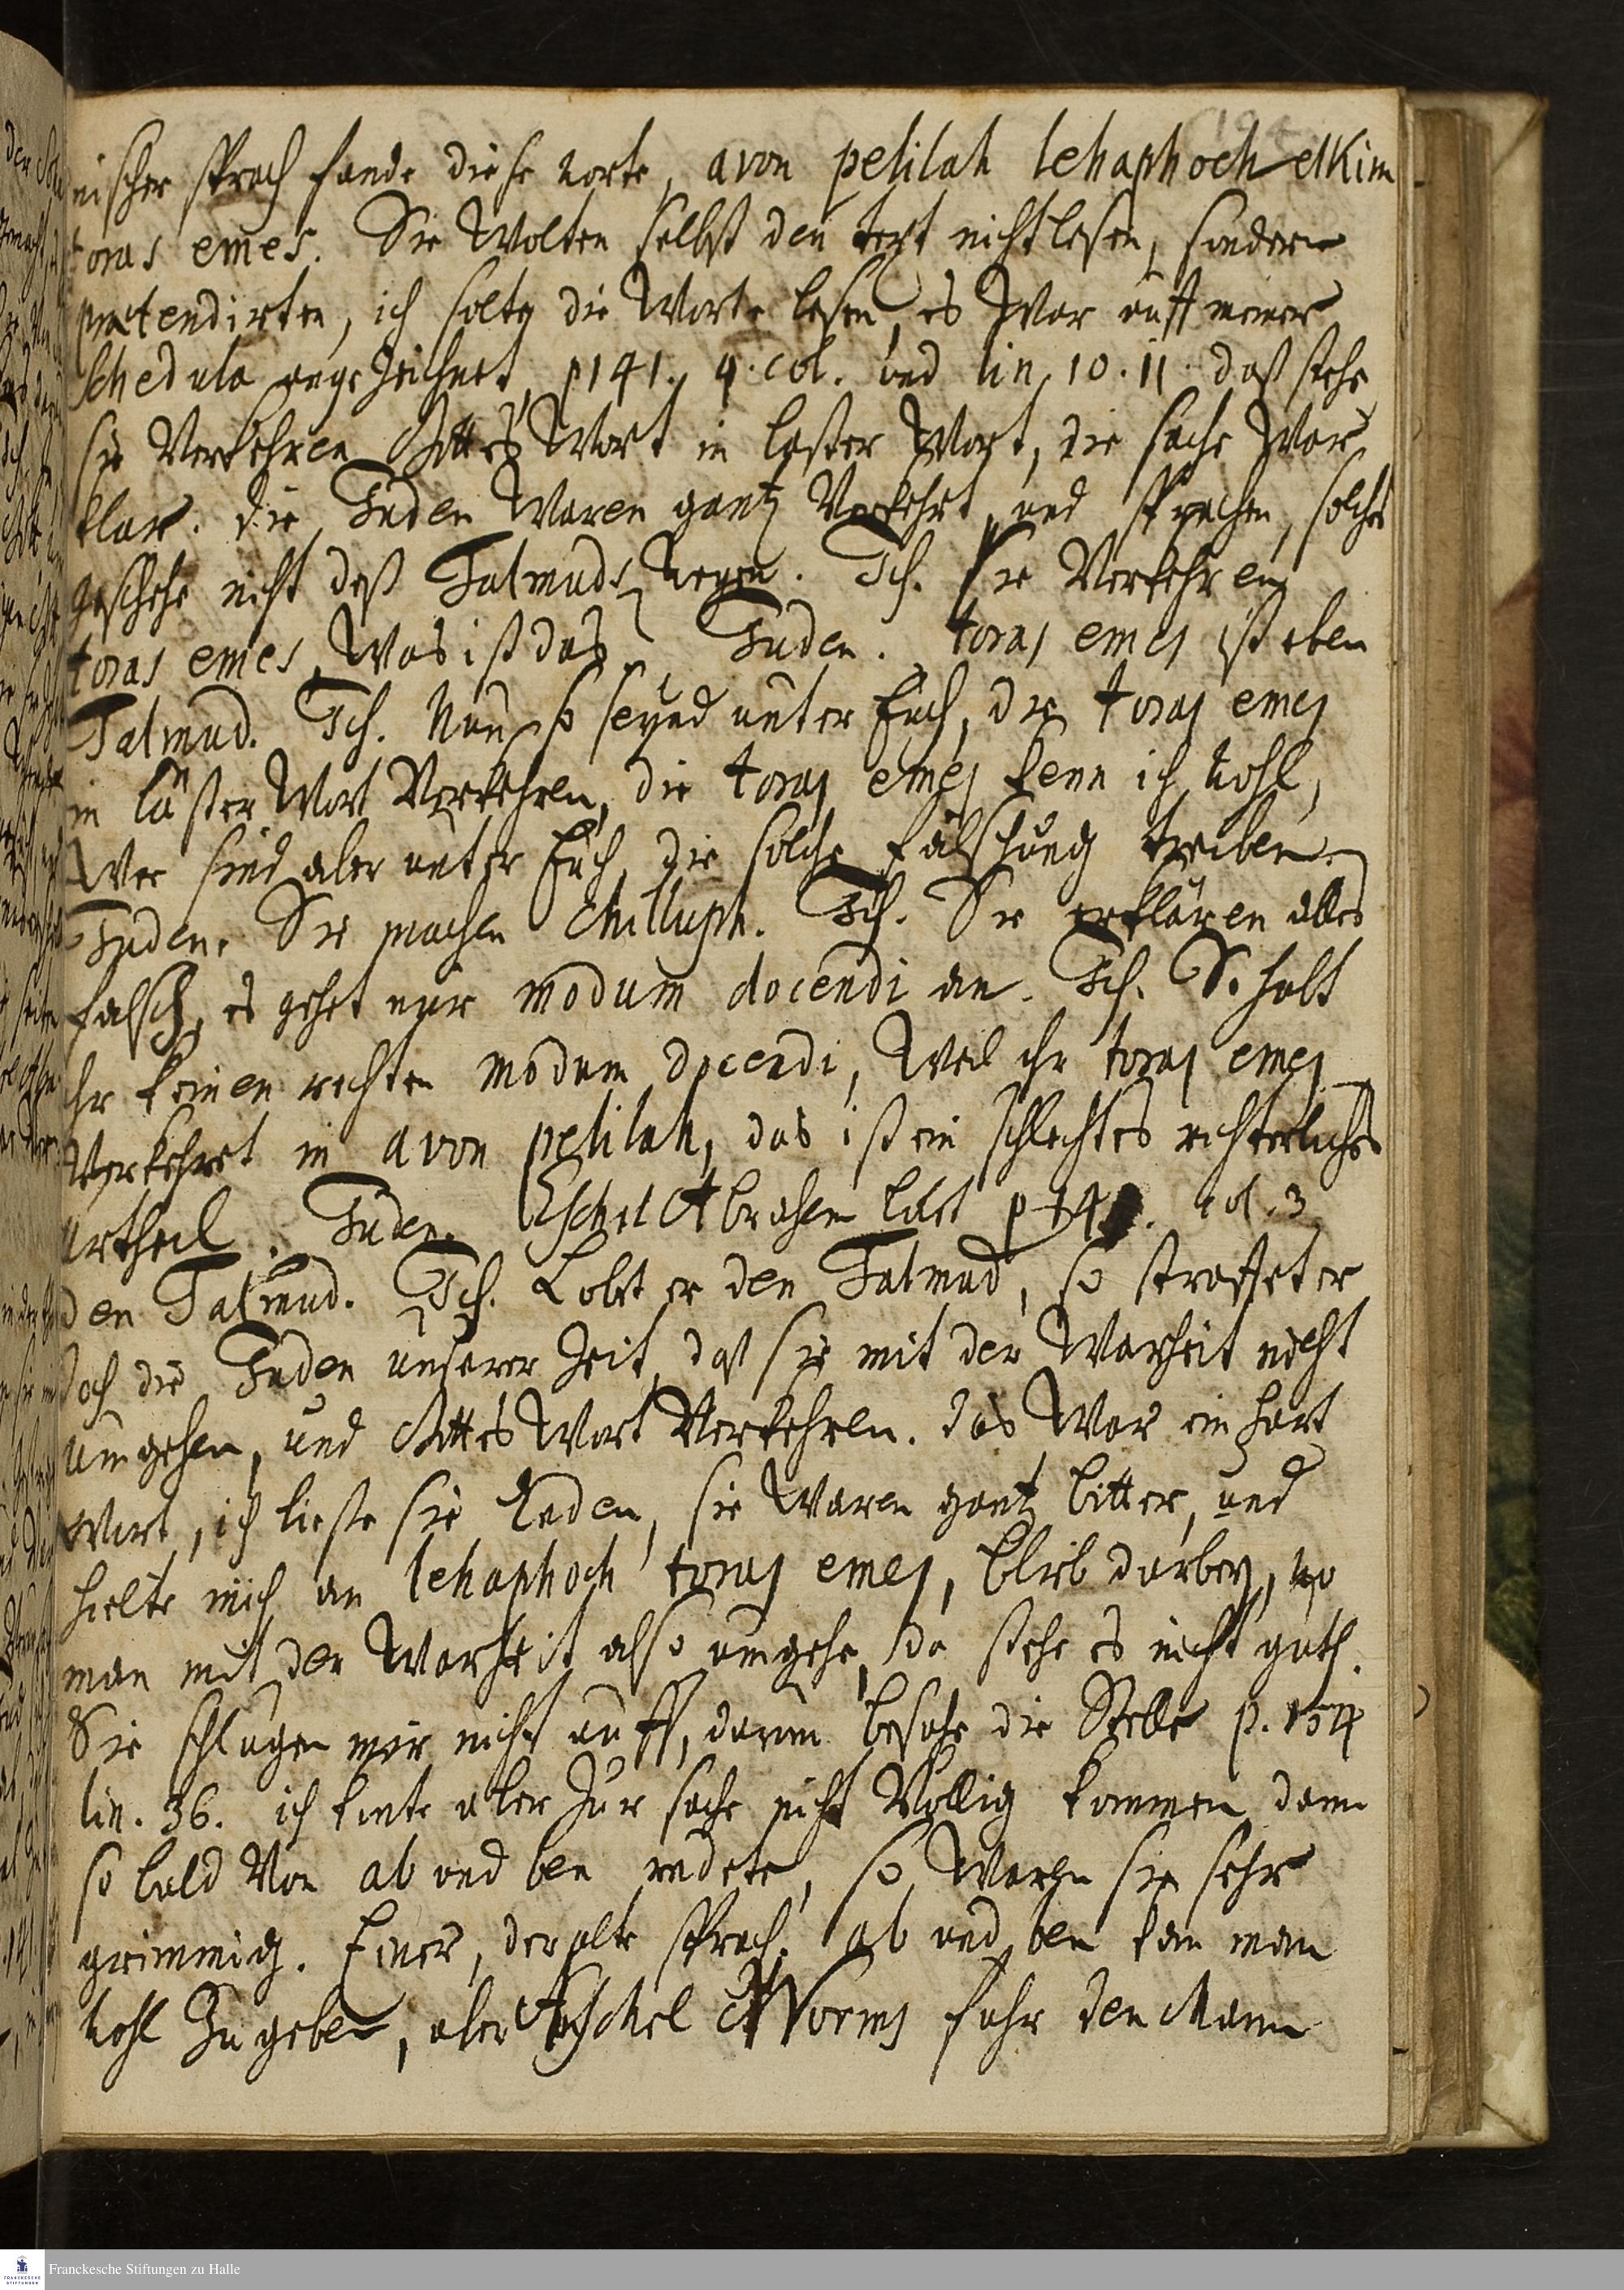 nischer sprach fande diese worte, avon pelilah lehaphoch elkim
toras emes. Sie Wolten selbst den text nicht lesen, sondern
praetendirten, ich solte die Worte lesen, es War auff meiner
schedula angezeichnet, p 141. 4. col. und lin. 10. 11. daß stehe
sie Verkehren Gottes Wort in laster Wort, die sache War
klar. die Juden Waren gantz Verkehrt, und sprachen, solches
geschehe nicht deß Talmuds wegen. Ich. sie Verkehren
toras emes, Was ist das? Juden. toras emes ist eben
Talmud. Ich. Nun so seynd unter Euch, die toras emes
in läster Wort Verkehren, die toras emes kenn ich wohl,
Wer sind aber unter Euch, die solche fälschung treiben.
Juden. Sie machen Chilluph. Ich. Sie erklären alles
falsch, es gehet nur modum docendi an. Ich. So halt
ihr keinen rechten modum docendi, Weil ihr toras emes
Verkehret in avon pelilah, das ist ein schlechtes richterliches
urtheil. Juden. Eschel Abraham lobt p 14 . col. 3
den Talmud. Ich. Lobt er den Talmud, so straffet er
doch die Juden unserer Zeit, daß sie mit der Warheit nicht
umgehen, und Gottes Wort Verkehren. das War ein hart
Wort, ich ließe sie Reden, sie Waren gantz bitter, und
hielte mich an lehaphoch toras emes, blieb darbey, wo
man mit der Warheit also umgehe, da stehe es nicht guth.
Sie schlugen mir nicht auff, darum besahe die Stelle p. 154
lin. 36. ich konte aber zur sache nicht Völlig kommen dann
so bald Von ab und ben redete, so Waren sie sehr
grimmig. Einer, der alte sprach: ab und ben kan man
wohl Zugeben, aber Aschel Worms fuhr den Mann
Franckesche Stiftungen zu Halle